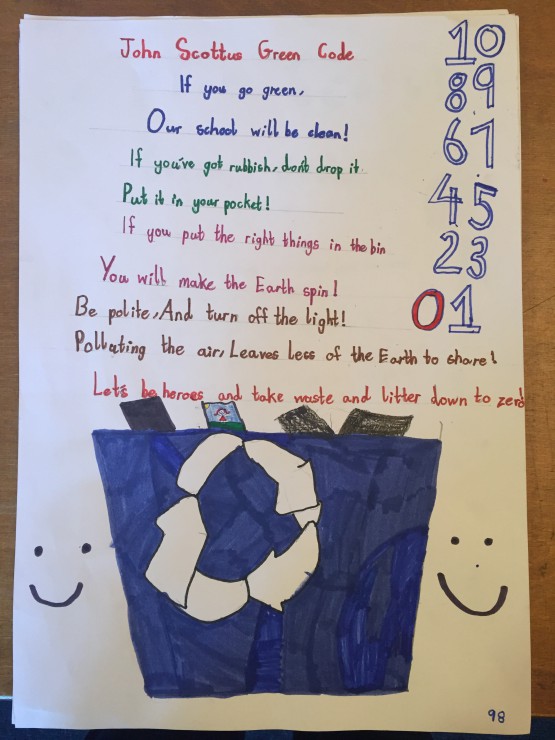 John Scottus Green Code
If you go green,
Our school will be clean!
If you've got rubbish, don't drop it
Put it in your pocket!
If you put the right things in the bin
You will make the Earth spin!
Be polite, And turn off the light!
Polluting the air, Leaves less of the Earth to share!
Let's be heroes and take waste and litter down to zero
10
89
67
45
23
01
98